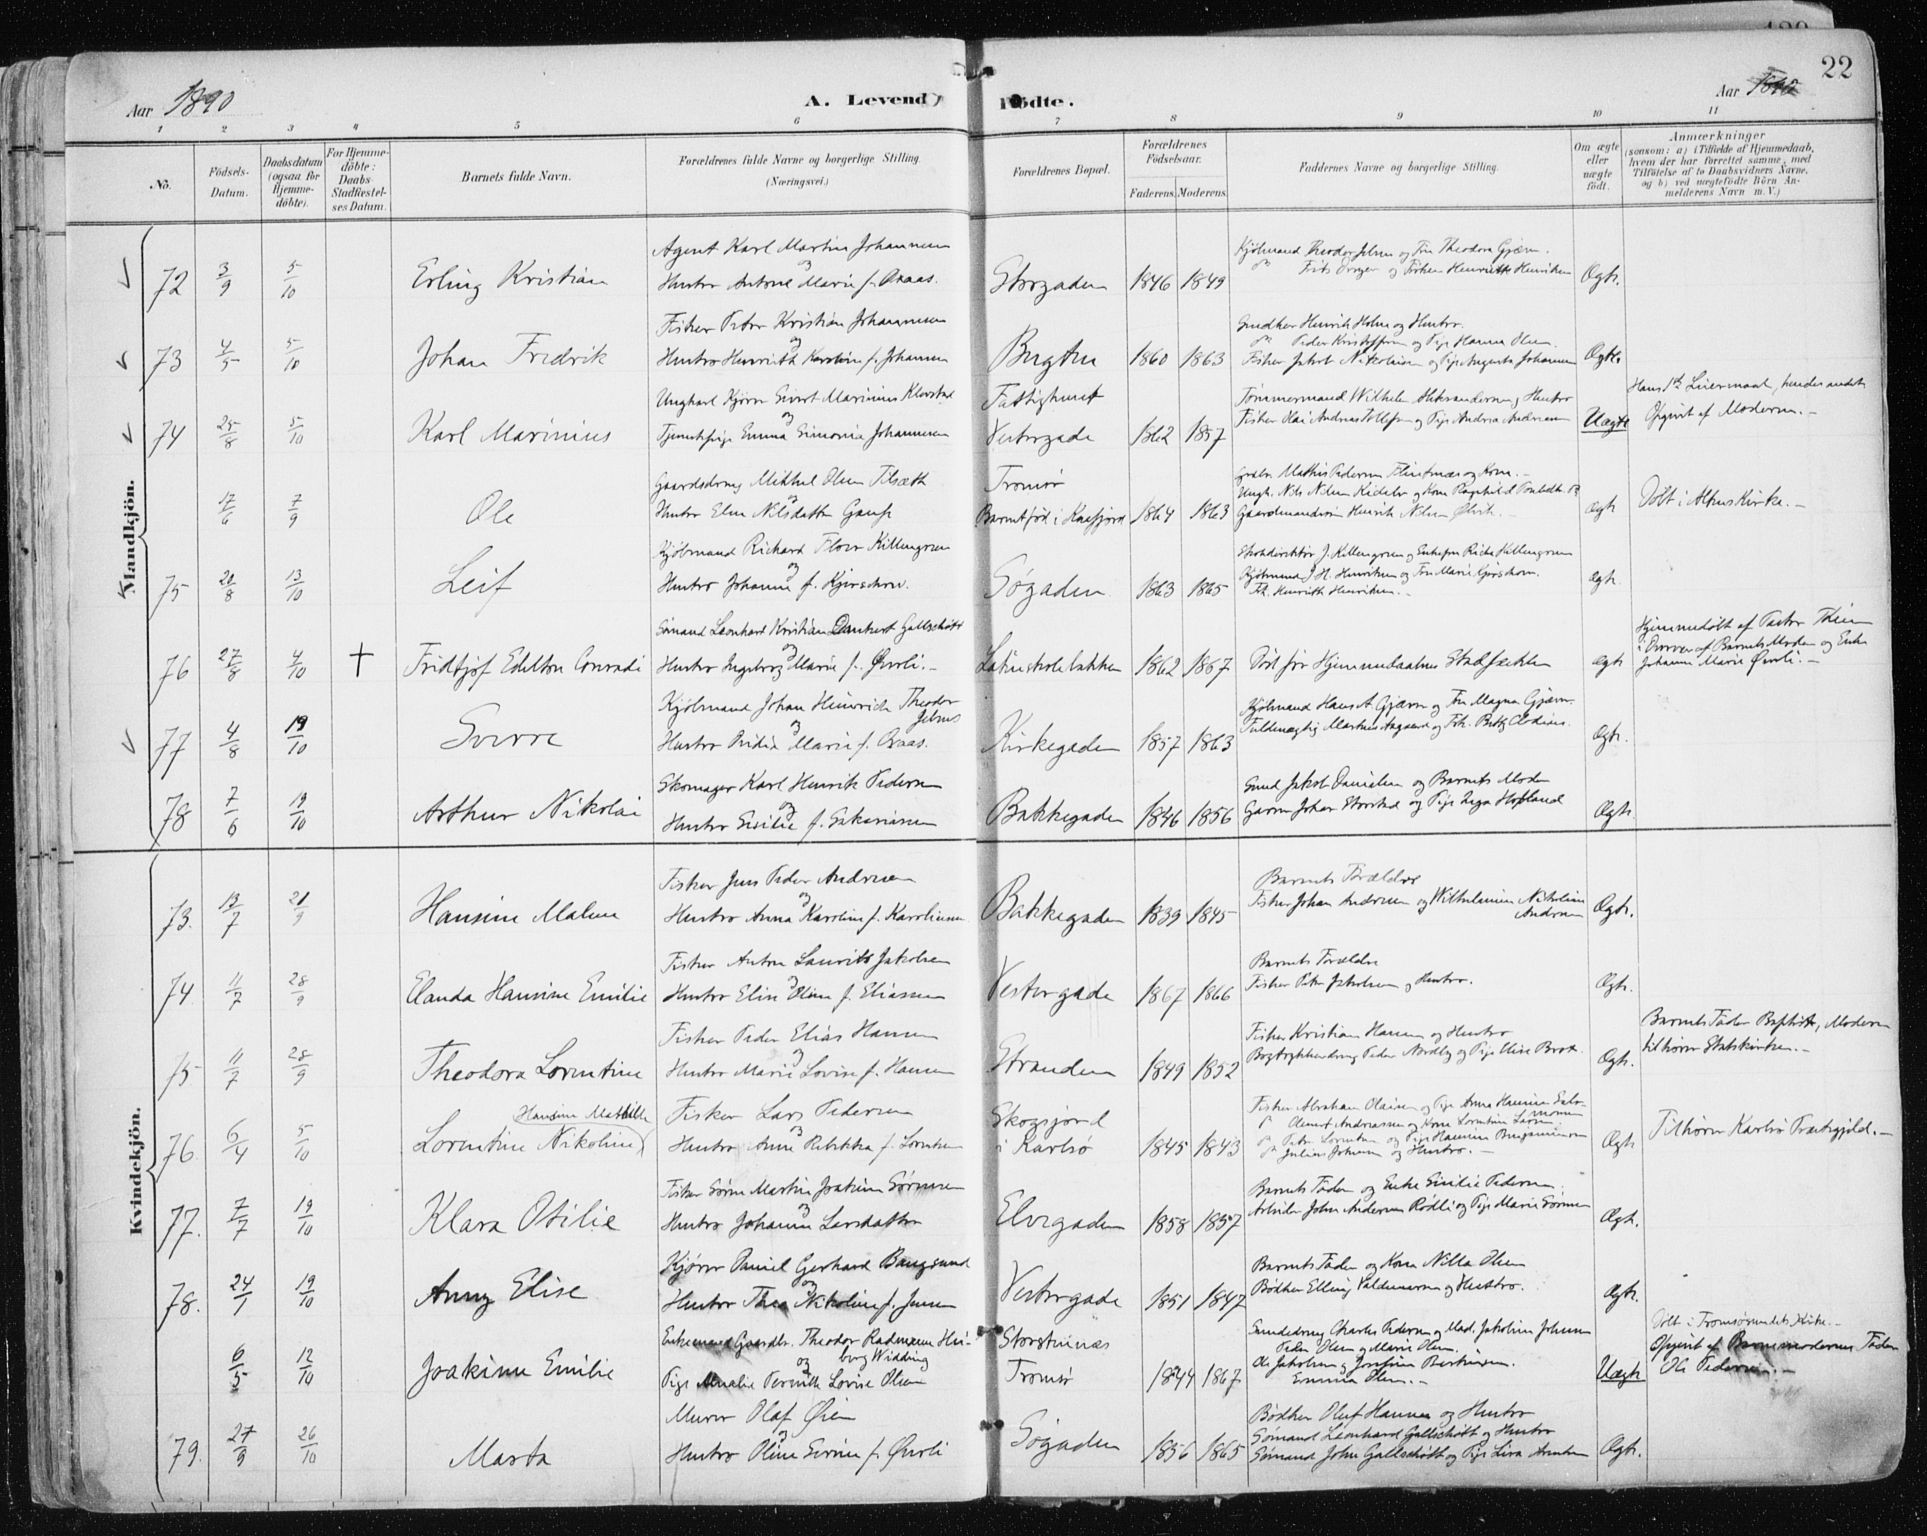 22
Aar 1890
A. Levende
Fødte.
Aar 1890
1 2 3 4 5 6 7 8 9 10 11
No.
Födsels-Datum.
Daabsdatum (ogsaa for Hjemme-döbte).
For Hjemme-döbte: Daabs-Stadfæstel-ses Datum.
Barnets fulde Navn.
Forældrenes fulde Navne og borgerlige Stilling. (Næringsvei.)
Forældrenes Bopæl.
Forældrenes Födselsaar.
Faderens. Moderens.
Faddernes Navne og borgerlige Stilling.
Om ægte eller uægte födt.
Anmærkninger (saasom: a) i Tilfælde af Hjemmedaab, hvem der har forrettet samme, med Tilföielse af to Daabsvidners Navne, og b) ved uægtefödte Börn An-melderens Navn m. V.)
Mandkjön.
72 3/9 5/10 Erling Kristian
Agent Karl Martin Johannesen
og
Hustro Antone Marie f. Aas.
Storgaden 1846 1849
Kjøbmand Theodor Jebens og Fru Theodora Gjæver.
Frøken Henriette Henriksen
Ægte.
73 4/5 5/10 Johan Fredrik
Fisker Peter Kristian Johannesen
og
Hustro Henriette Karoline f. Johansen
Bugten 1860 1863
Snedker Henrik Holm og Hustro.
Peder Kristoffersen og Pige Hanna Olsen.
Fisker Jakob Nikolaisen og Pige Augusta Johannesen
Ægte.
74 25/8 5/10 Karl Marinius
Ungkarl Kjører Sivert Marinius Klovstad
og
Tjenestepige Emma Simonia Johannesen
Fattighuset
Vestergade 1862 1857
Tømmermand Wilhelm Aleksandersen og Hustro
Uægte
Hans 1ste Leiermaal, hendes andet
Opgivet af Moderen.
17/6 7/9 Ole
Gaardsdreng Mikkel Olsen Tilsæth
og
Hustro Elen Nilsdatter Gamst
Tromsø
Barnet fød i Kaafjord 1864 1863
Gaardmandssøn Henrik Nilsen Ølvik.
Ægte
Døbt i Altens Kirke.
75 20/8 13/10 Leif
Kjøbmand Richard Floer Killengreen
og
Hustro Johanne f. Kjerschow.
Søgaden 1863 1865
Skoledirektør J. Killengreen og Enkefru Rikka Killengreen
Kjøbmand J. H. Henriksen og Fru Marie Gjerschow.
Frk. Henriette Henriksen.
Ægte.
76 27/8 4/10 † Fridtjof Edelton Conradi
Sømand Leonhard Kristian Dankert Gallschøtt
og
Hustro Ingeborg Marie f. Øverli.
Latinskolebakken 1862 1867
Død før Hjemmedaabens Stadfæstelse
Ægte
Hjemmedøbt af Pastor Thein
i Overvær af Barnets Moder og Enke
Johanne Marie Øverli.
77 4/8 19/10 Sverre
Kjøbmand Johan Heinrich Theodor
Jebens
og
Hustro Marie f. Aas.
Kirkegaden 1857 1863
Kjøbmand Hans A. Gjæver og Fru Magna Gjæver.
Fuldmægtig Martin Aagaard og Frk. Betzy Clodius.
Ægte.
78 7/6 19/10 Arthur Nikolai
Skomager Karl Henrik Pedersen
og
Hustro Sisilie f. Sakariasen
Bakkegaden 1846 1856
Smed Jakob Danielsen og Barnets Moder
Garver Johan Storstad og Pige Inga Hofland
Ægte
Kvindekjön.
73. 13/7 21/9 Hansine Malene
Fisker Jens Peder Andersen
og
Hustro Anna Karoline f. Karoliussen
Bakkegaden 1839 1845
Barnets Forældre
Fisker Johan Andersen og Wilhelmine Nikoline
Andersen
Ægte.
74. 11/7 28/9 Elauda Hansine Emilie
Fisker Anton Laurits Jakobsen
og
Hustro Elise Oline f. Eliassen
Vestergade 1867 1866
Barnets Forældre
Fisker Peter Jakobsen og Hustro.
Ægte.
75 11/7 28/9 Theodora Lorentine
Fisker Peder Elias Hansen
og
Hustro Marie Lovise f. Hansen
Stranden 1849 1852
Fisker Kristian Hansen og Hustro
Bogtrykkerdreng Peder Nordby og Pige Elise Brox.
Ægte.
Barnets Fader Baptist, Moderen
tilhører Statskirken.
76. 6/4 5/10 Lorentine Nikoline
Hansine Mathilde
Fisker Lars Pedersen
og
Hustro Anne Rebekka f. Lorentsen
Skogsfjord
i Karlsø 1845 1843
Fisker Abraham Olaisen og Pige Anna Hansine Salomonsen
Klemet Andreassen og Kone Lorentine Larsen
Peter Lorentsen og Pige Hansine Benjaminsen
Julius Johnsen og Hustro.
Ægte
Tilhører Karlsø Præstegjeld.
77. 7/7 19/10 Klara Otilie
Fisker Søren Martin Joakim Sørensen
og
Hustro Johanna Larsdatter
Elvegaden 1858 1857
Barnets Fader og Enke Sisilie Pedersen.
Arbeider John Andersen Rødli og Pige Marie Sørensen
Ægte.
78. 24/1 19/10 Anny Elise
Kjører Daniel Gerhard Bangsund
og
Hustro Thea Nikoline f. Jensen
Vestergade 1851 1847
Barnets Fader og Kone Nilla Olsen
Bødker Elling Valdemarsen og Hustro.
Ægte.
6/5 12/10 Joakime Emilie
Enkemand Gaardbr. Theodor Radmann Hei-
berg Widding
og
Pige Amalie Pernille Lovise Olsen
Storstennæs
Tromsø 1844 1867
Peder Olsen og Marie Olsen.
Ole Jakobsen og Josefine
Emma Olsen.
Uægte
Døbt i Tromsøsundets Kirke.
Opgivet af Barnemoderens Fader
Ole Pedersen.
79. 27/9 26/10 Marta
Murer Olaf Øien
og
Hustro Oline Sverine f. Øverli
Søgaden 1856 1865
Bødker Oluf Hansen og Hustro
Sømand Leonhard Gallschøtt og Hustro
Sømand John Gallschøtt og Pige Lina Arntsen
Ægte.